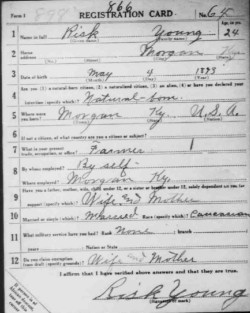 Form 1
REGISTRATION CARD
866
No. 65
1 Name in full Risk Young
Age, in yrs. 24
2 Home address Morgan Ky
3 Date of birth May 4 1893
4 Are you (1) a natural-born citizen, (2) a naturalized citizen, (3) an alien, (4) or have you declared your
intention (specify which)? Natural-born
5 Where were you born? Morgan Ky. U.S.A.
6 If not a citizen, of what country are you a citizen or subject?
7 What is your present trade, occupation, or office? Farmer
8 By whom employed? By self
Where employed? Morgan Ky.
9 Have you a father, mother, wife, child under 12, or a sister or brother under 12, solely dependent on you for
support (specify which)? Wife and Mother
10 Married or single (which)? Married Race (specify which)? Caucasian
11 What military service have you had? Rank None branch
years Nation or State
12 Do you claim exemption from draft (specify grounds)? Wife and Mother
I affirm that I have verified above answers and that they are true.
Risk Young